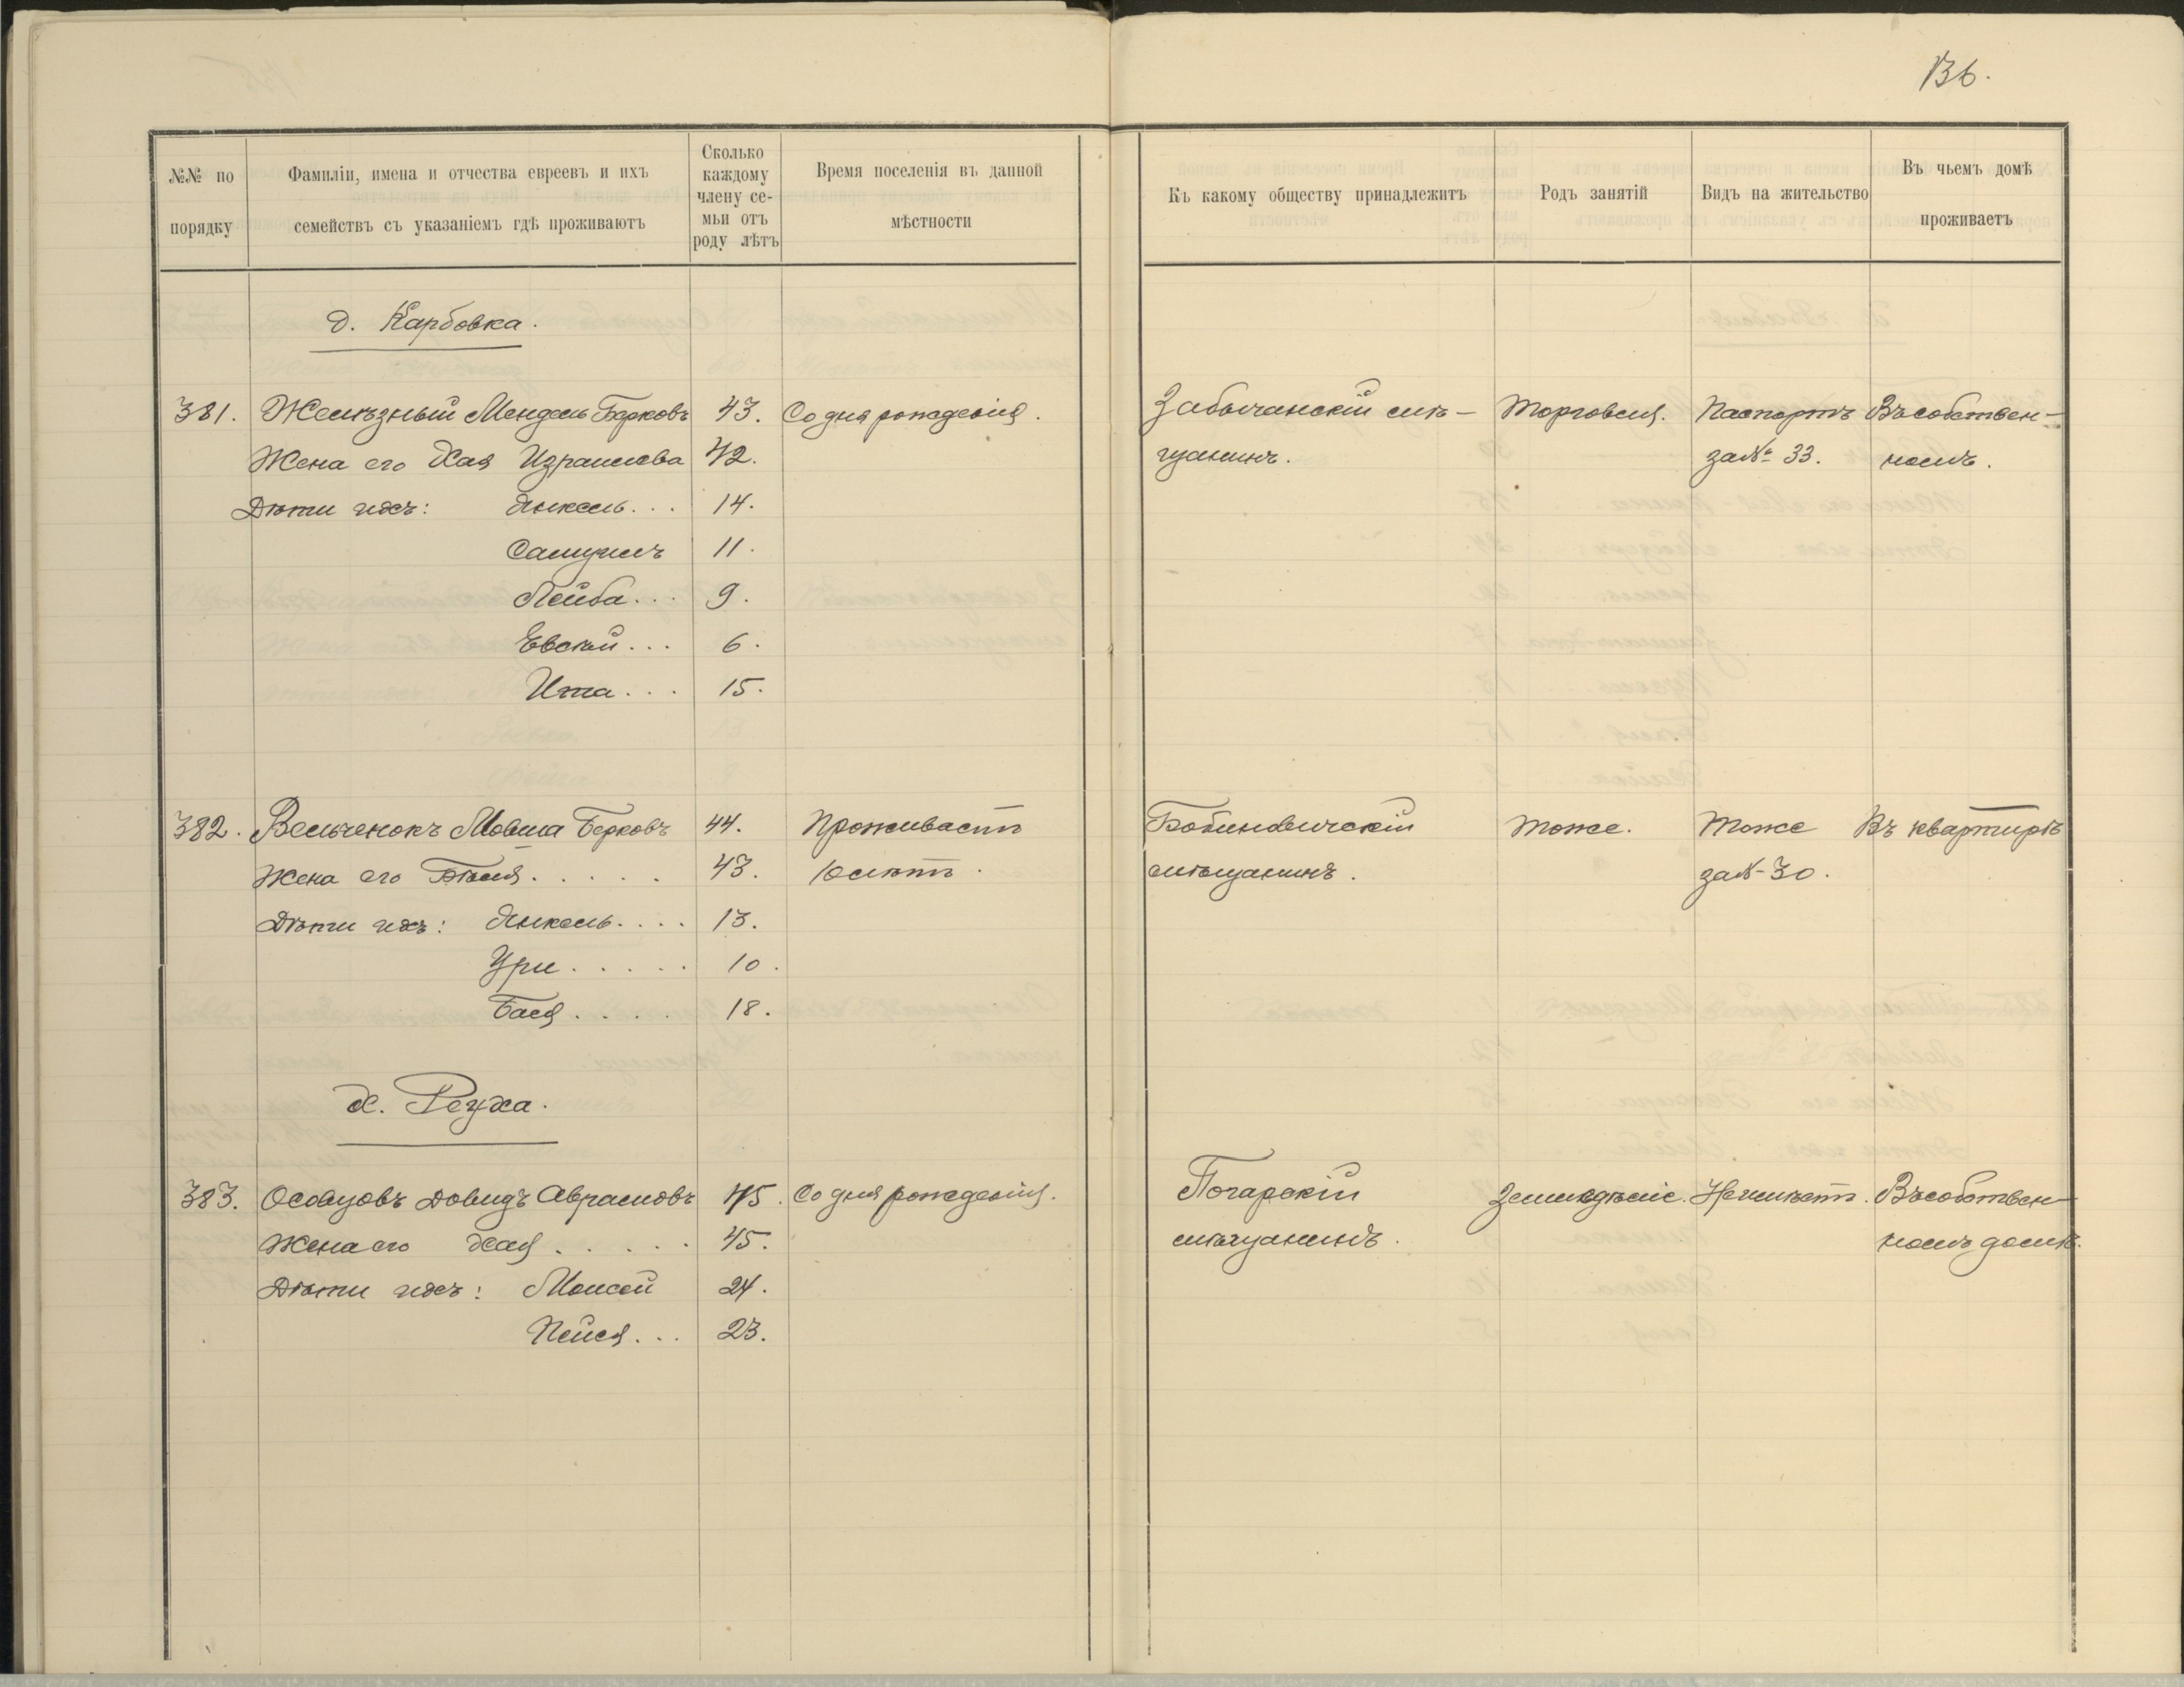 136.
№№ по порядку
Фамиліи, имена и отчества евреевъ и ихъ семействъ съ указаніемъ гдѣ проживаютъ
Сколько каждому члену семьи отъ роду лѣтъ
Время поселенія въ данной мѣстности
Къ какому обществу принадлежитъ
Родъ занятій
Видъ на жительство
Въ чьемъ домѣ проживаетъ
д. Карбовка.
381. Желѣзный Мендель Берковъ 43. Со дня рожденія. Забычанскій мѣ- Торговля. Паспортъ Въ собствен-
Жена его Хая Израилева 42. щанинъ. за № 33. номъ.
Дѣти ихъ: Янкель... 14.
Самуилъ 11.
Лейба... 9.
Евсѣй... 6.
Ита... 15.
382. Вельченокъ Мовша Берковъ 44. Проживаетъ Бабиновичскій Тоже. Тоже Въ квартирѣ
Жена его 43. 10 лѣтъ. мѣщанинъ. за № 30.
Дѣти ихъ: Янкель.... 13.
Ури..... 10.
Бася.... 18.
х. Реуха.
383. Довидъ Абрамовъ 45. Со дня рожденія. Погарскій Земледѣліе. Неимѣетъ. Въ собствен-
Жена его Хая..... 45. мѣщанинъ. номъ домѣ.
Дѣти ихъ: Моисей 24.
Пейся... 23.